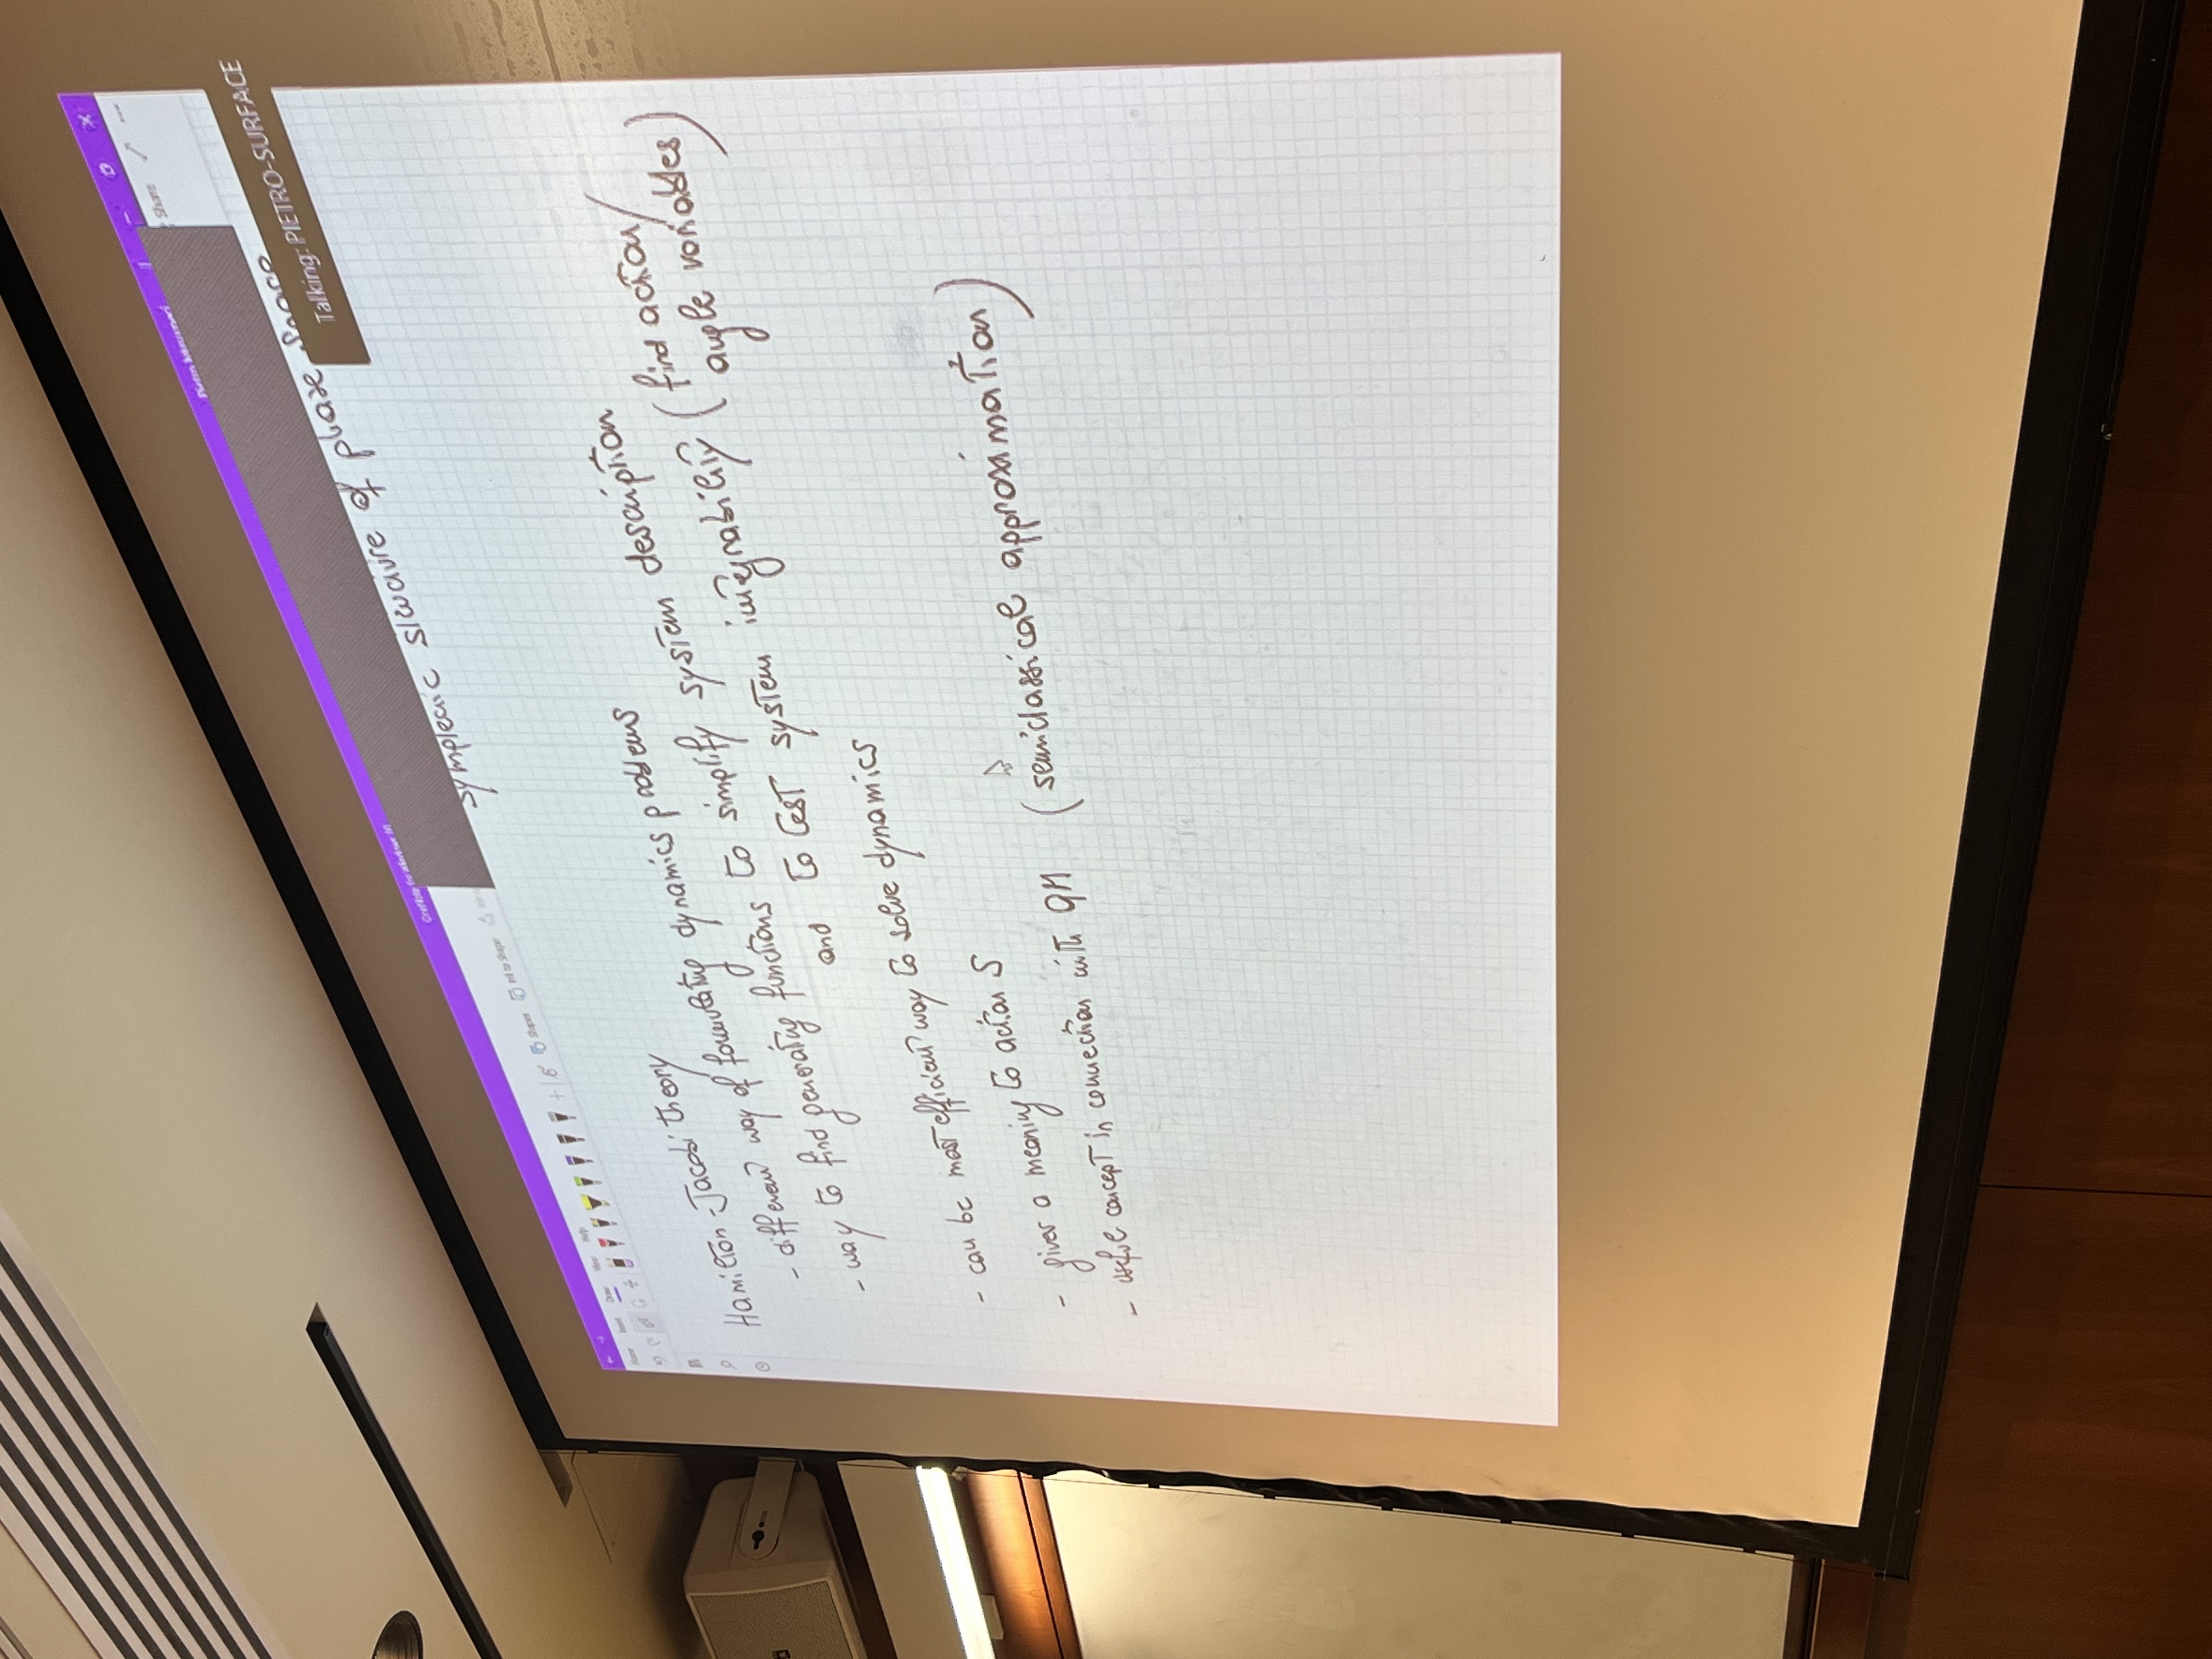 OneNote for Windows 10
Share
Talking: PIETRO-SURFACE
Home Insert Draw View Help
Shapes Ink to Shape
symplectic structure of phase space
Hamilton-Jacobi theory
- different way of formulating dynamics problems
- way to find generating functions to simplify system description
and to test system integrability (find action/
angle variables)
- can be most efficient way to solve dynamics
- gives a meaning to action S
- useful concept in connection with QM (semiclassical approximation)